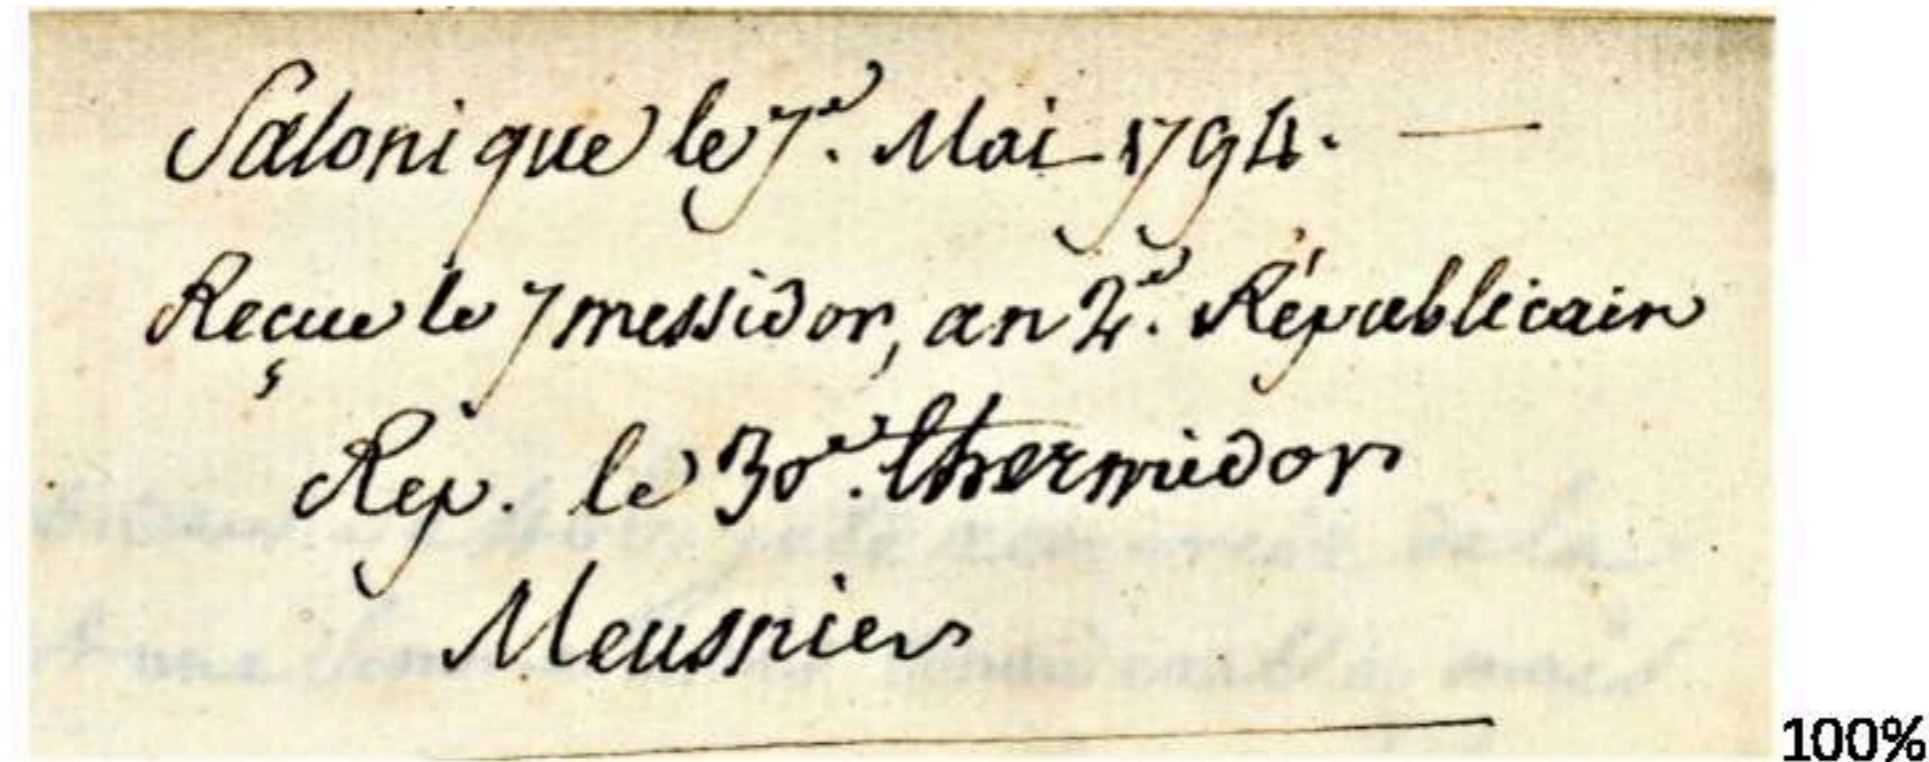 Salonique le 7e. Mai 1794. —
Reçue le 7 messidor, an 2e. Républicain
Rep. le 30e. thermidor
Meusnier
100%